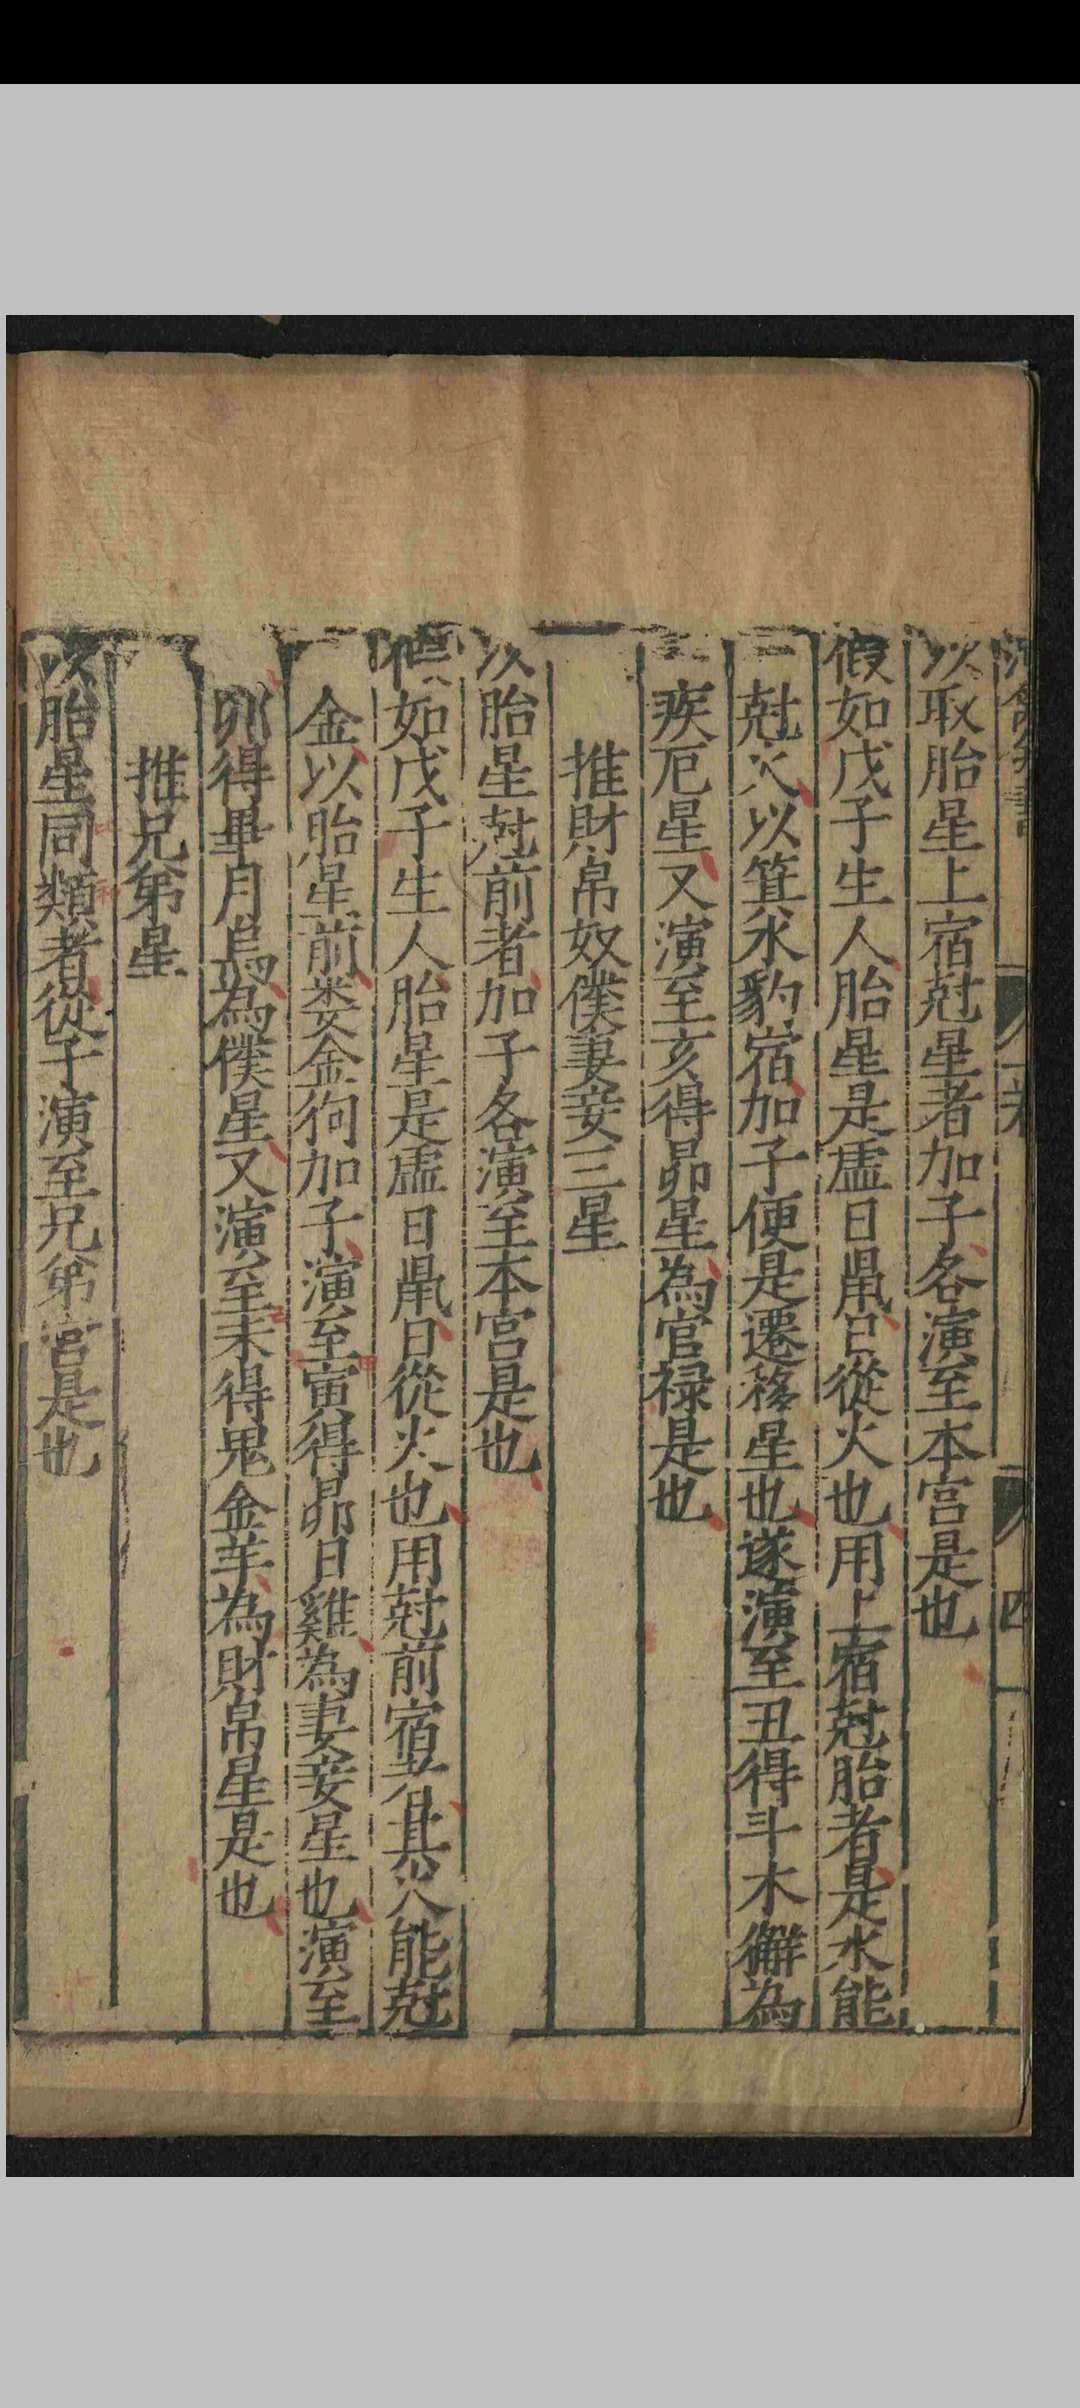 以取胎星上宿尅星者加子各演至本宮是也
假如戊子生人胎星是虛日鼠日從火也用上宿尅胎者是水能
尅火以箕水豹宿加子便是遷移星也遂演至丑得斗木獬為
疾厄星又演至亥得昴星為官禄是也
推財帛奴僕妻妾三星
以胎星尅前者加子各演至本宮是也
假如戊子生人胎星是虛日鼠日從火也用尅前宿者其火能尅
金以胎星前婁金狗加子演至寅得昴日雞為妻妾星也演至
卯得畢月烏為僕星又演至未得鬼金羊為財帛星是也
推兄弟星
以胎星同類者從子演至兄弟宮是也
四